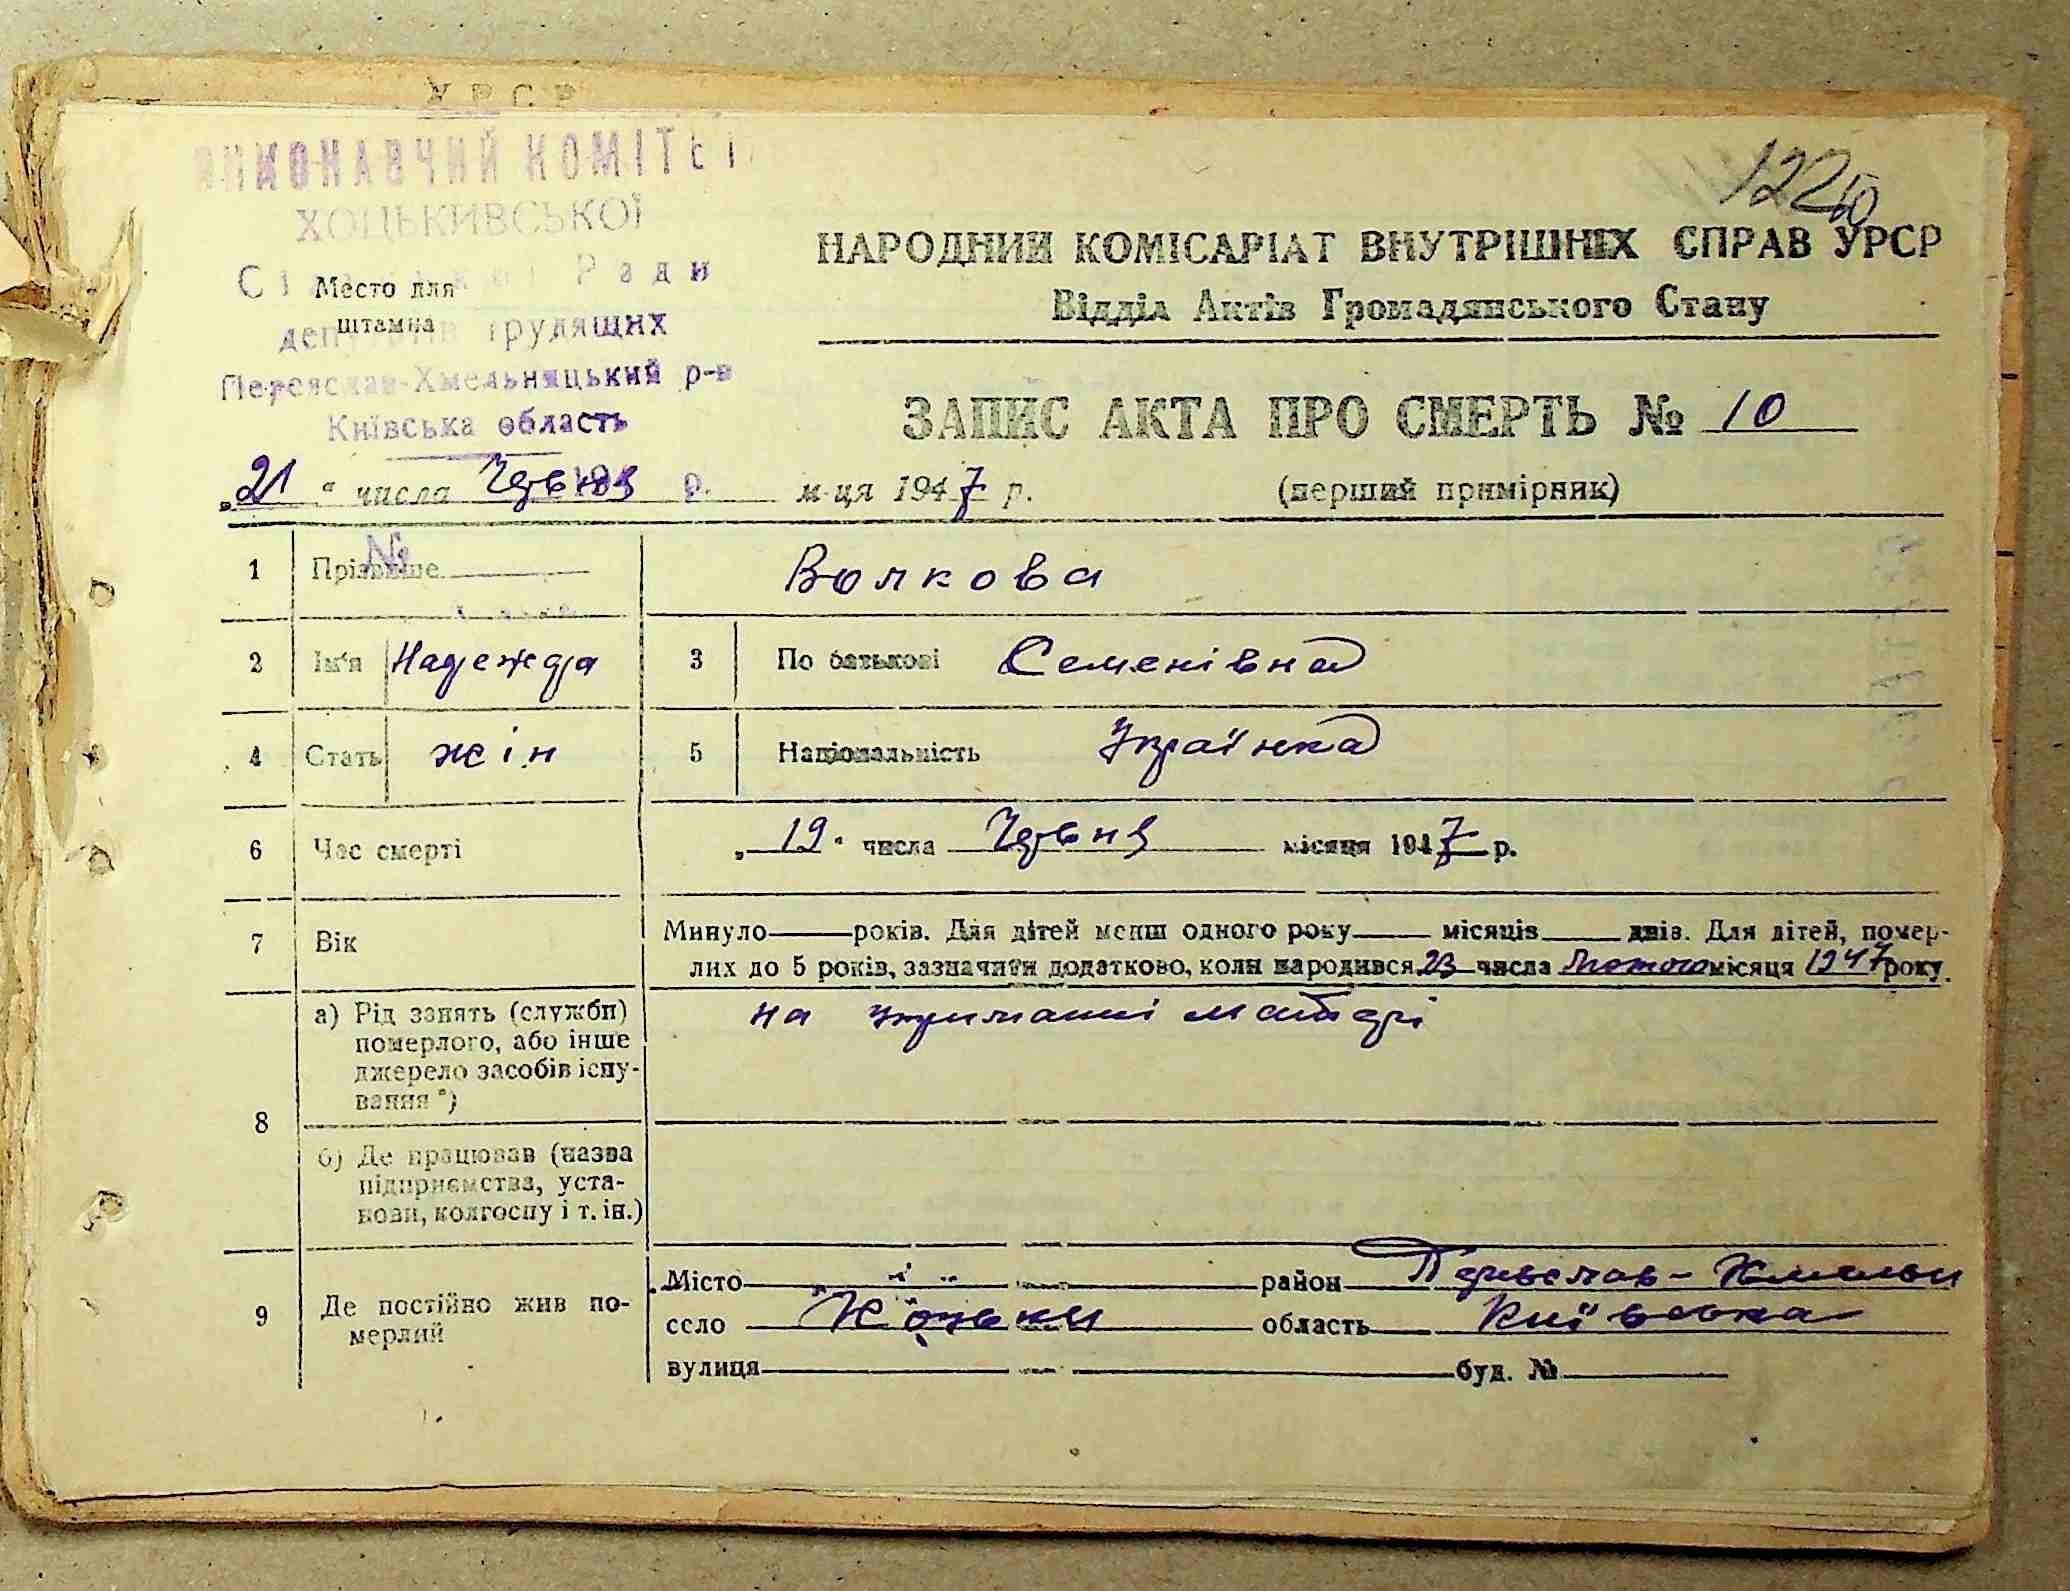 УРСР
ВИКОНАВЧИЙ КОМІТЕТ
ХОЦЬКИВСЬКОЇ
Сільської Ради
депутатів трудящих
Переяслав-Хмельницький р-н
Київська область
194 р.
№
Место для
штампа
1220
НАРОДНИЙ КОМІСАРІАТ ВНУТРІШНІХ СПРАВ УРСР
Відділ Актів Громадянського Стану
ЗАПИС АКТА ПРО СМЕРТЬ № 10
„21“ числа Червня м-ця 1947 р. (перший примірник)
1 Прізвище Волкова
2 Ім'я Надежда 3 По батькові Семенівна
4 Стать жін 5 Національність Українка
6 Час смерті „19“ числа Червня місяця 1947 р.
7 Вік Минуло років. Для дітей менш одного року місяців днів. Для дітей, помер-
лих до 5 років, зазначити додатково, коли народився 23 числа Лютого місяця 1947 року.
8 а) Рід занять (служби)
померлого, або інше
джерело засобів існу-
вання*)
на утриманні матері
б) Де працював (назва
підприємства, уста-
нови, колгоспу і т. ін.)
9 Де постійно жив по-
мерлий
Місто район Переяслав-Хмельн
село Хоцьки область Київська
вулиця буд. №